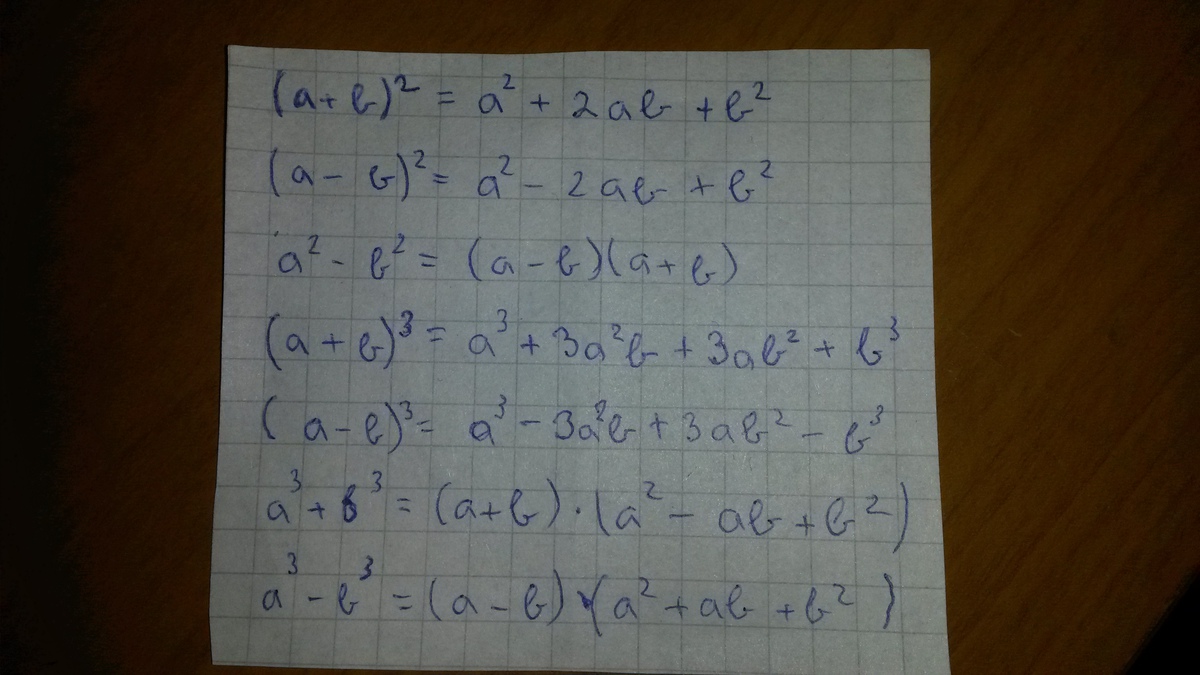 (a+b)² = a² + 2ab + b²
(a - b)² = a² - 2ab + b²
a² - b² = (a - b)(a + b)
(a + b)³ = a³ + 3a²b + 3ab² + b³
(a - b)³ = a³ - 3a²b + 3ab² - b³
a³ + b³ = (a+b)·(a² - ab + b²)
a³ - b³ = (a - b)·(a² + ab + b²)